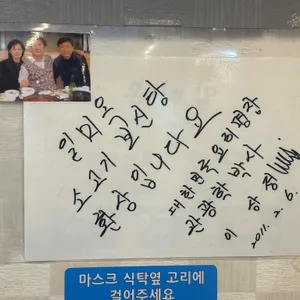 일미옥
소고기 보신탕
환상 입니다요
대한민국요리명장
관광학 박사
이 상 정
2011. 2. 6.
마스크 식탁옆 고리에
걸어주세요